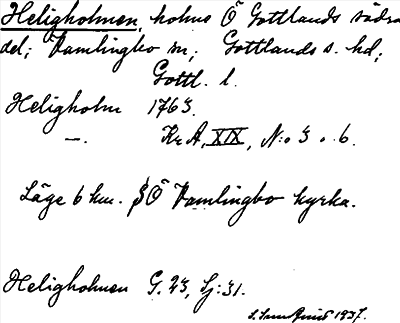 Heligholmen, holme Ö Gottlands södra
del; Vamlingbo sn; Gottlands s. hd;
Gottl. l.
Heligholm 1763.
—. Kr. A, XIX, N:o 3 o. 6.
Läge 6 km. SÖ Vamlingbo kyrka.
Heligholmen G. 23, Lj:31.
1937.